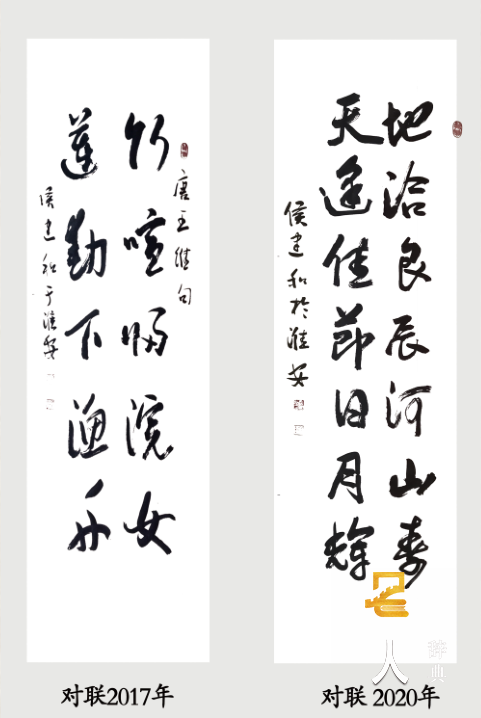 竹喧归浣女
唐王維句
莲動下渔舟
侯建和于淮安
地洽良辰河山寿
天逢佳节日月辉
侯建和於淮安
人
辞典
对联2017年
对联 2020年